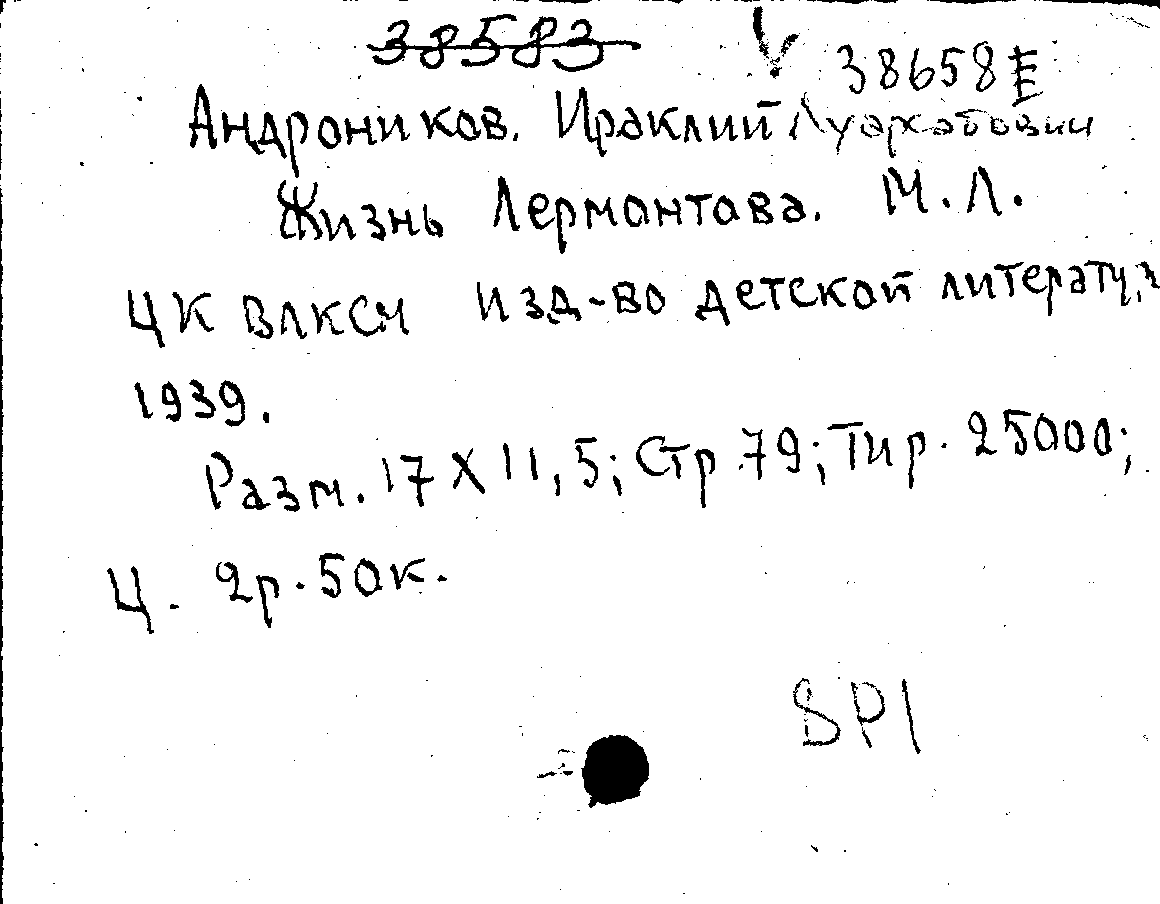 38583
38658
Андроников. Ираклий Луарсабович
Жизнь Лермонтова. М.Л.
ЦК ВЛКСМ Изд-во детской
1939.
Разм. 17 X 11,5; Стр. 79; Тир. 25000;
Ц. 2р.50к.
SPI